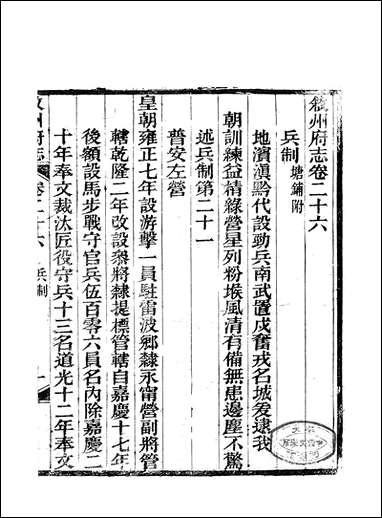 敘州府志卷二十六
兵制 塘鋪附
地濱滇黔代設勁兵南武置戍奮戎名城爰逮我
朝訓練益精綠營星列粉堠風清有備無患邊塵不驚
述兵制第二十一
普安左營
皇朝雍正七年設游擊一員駐雷波鄉隸永甯營副將管
轄乾隆二年改設叅將隸提標管轄自嘉慶十七年
後額設馬步戰守官兵伍百零六員名內除嘉慶二
十年奉文裁汰匠役守兵十三名道光十二年奉文
敘州府志 卷二十六 兵制 一